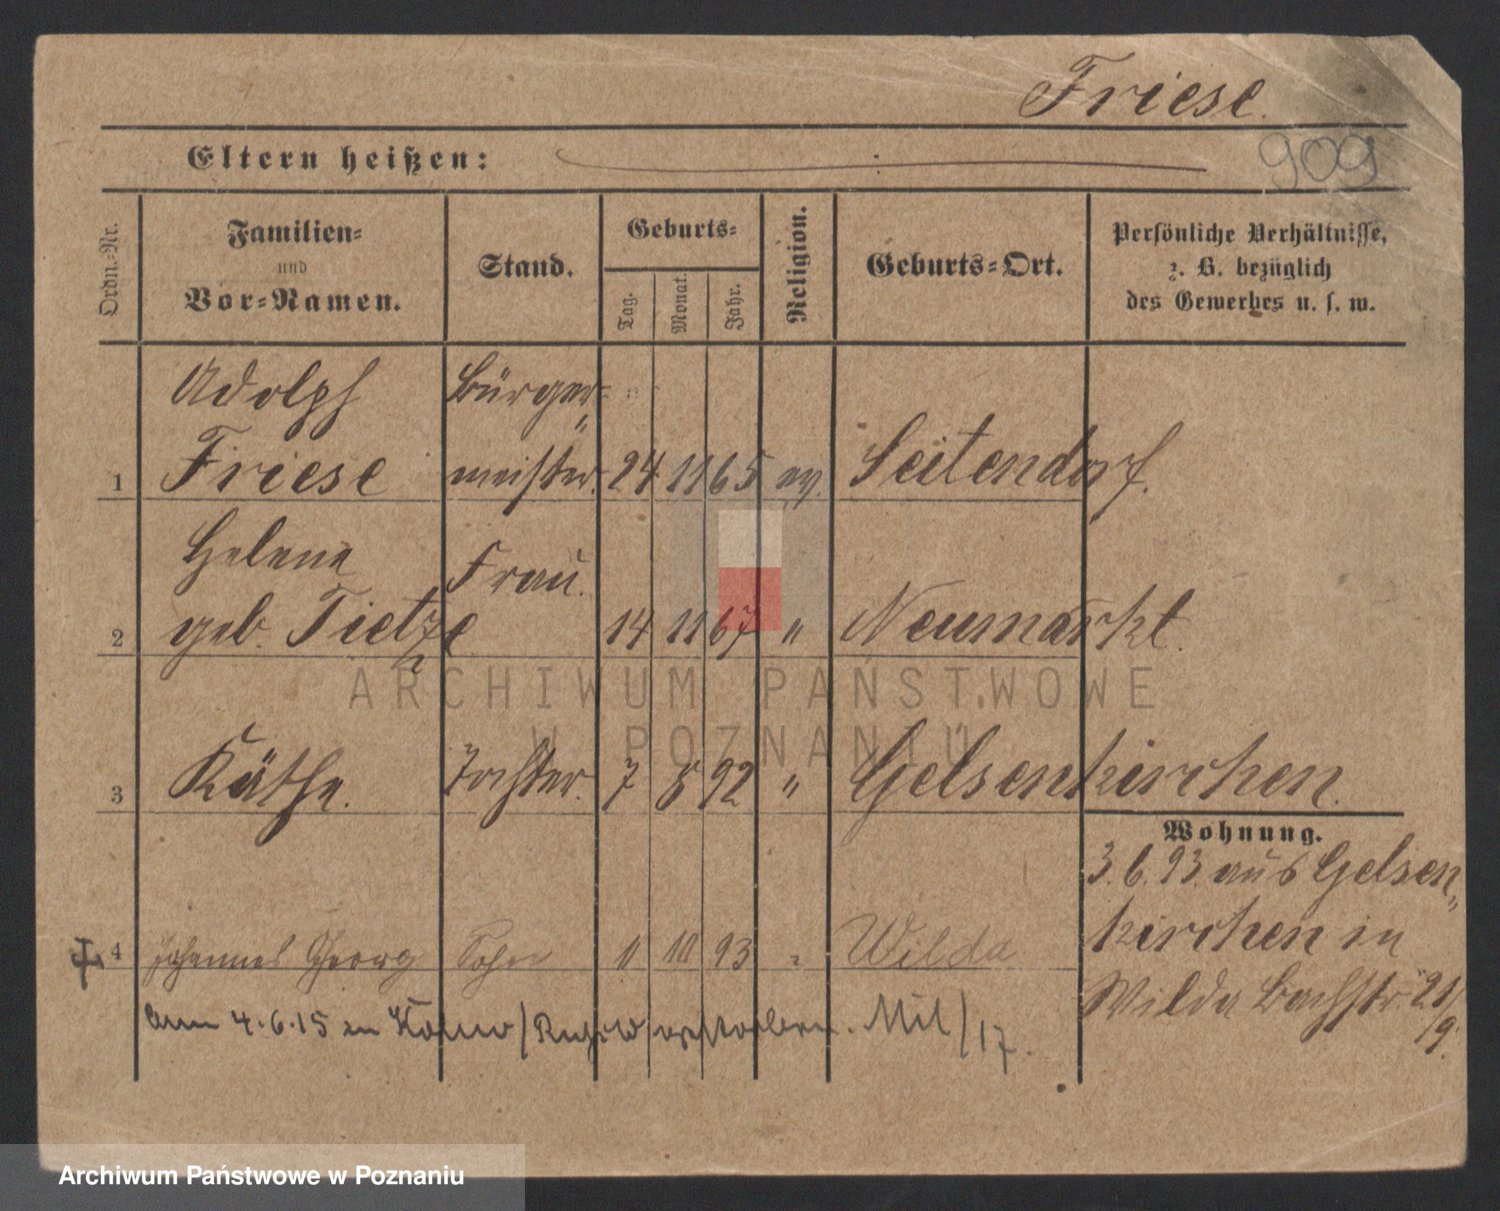 Friese.
909
Eltern heißen:
Ordn.-Nr.
Familien- und Vor-Namen.
Stand.
Geburts-
Tag. Monat. Jahr.
Religion.
Geburts-Ort.
Persönliche Verhältnisse,
z. B. bezüglich
des Gewerbes u. s. w.
Adolph Bürger-
1 Friese meister. 24 11 65 ev. Seitendorf.
Helene Frau.
2 geb. Tietze 14 11 67 " Neumarkt.
3 Käthe. Tochter. 7 8 92 " Gelsenkirchen.
Wohnung.
3.6.93. aus Gelsen-
kirchen in
Wilda Bachstr. 21/
9.
4 Johannes Georg Sohn 11 10 93 " Wilda
am 4.6.15 in gestorben. Mil/17.
ARCHIWUM PAŃSTWOWE
W POZNANIU
Archiwum Państwowe w Poznaniu